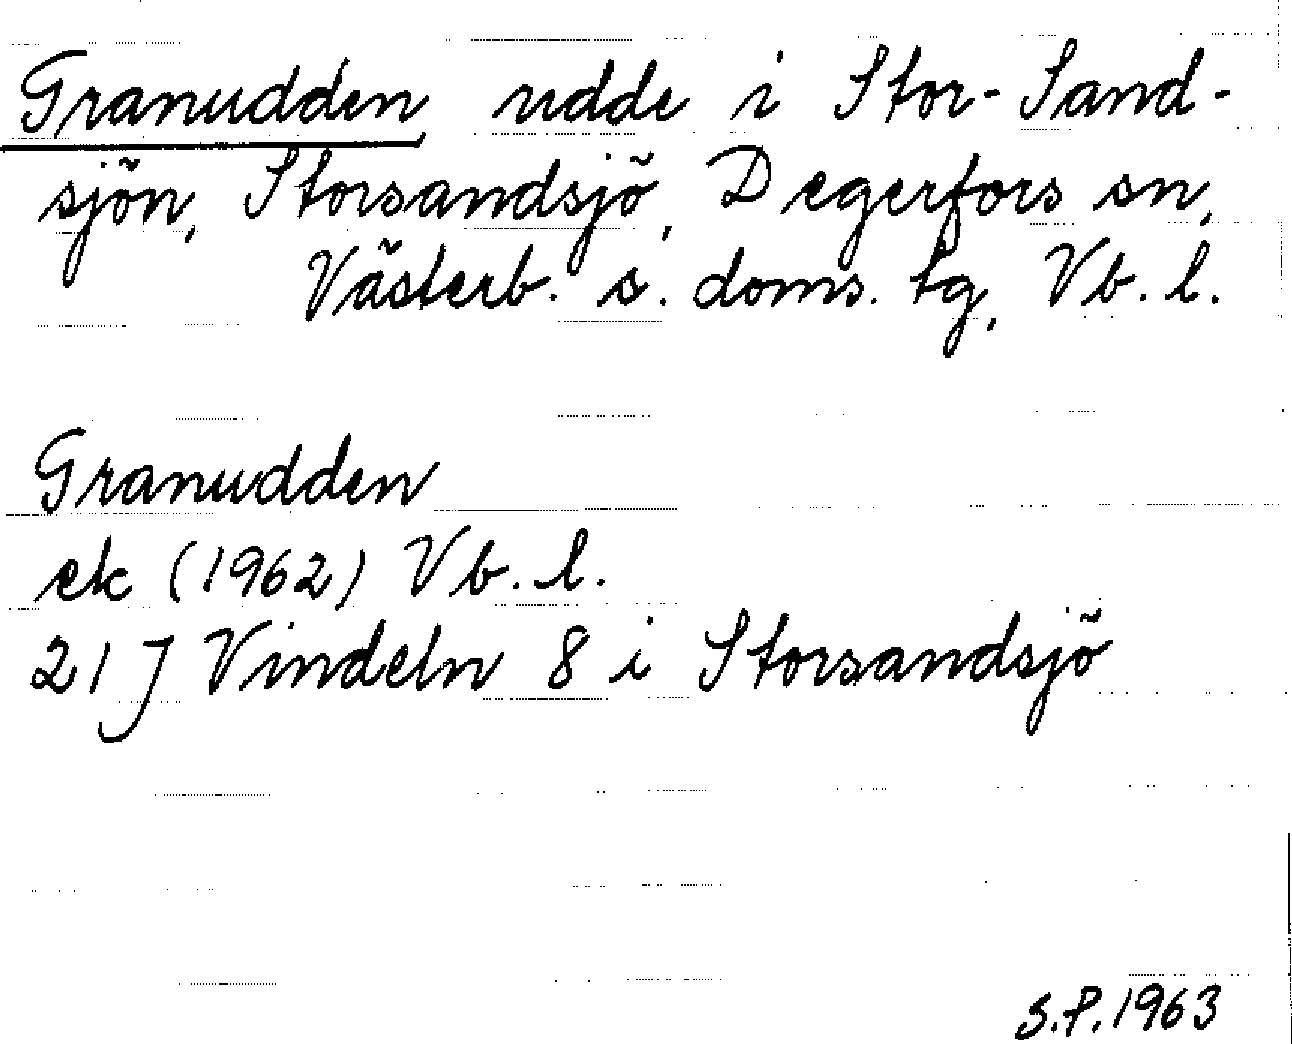 Granudden, udde i Stor-Sand-
sjön, Storsandsjö, Degerfors sn,
Västerb. s. doms. tg, Vb. l.
Granudden
ek (1962) Vb. l.
21 J Vindeln 8 i Storsandsjö
S.P. 1963